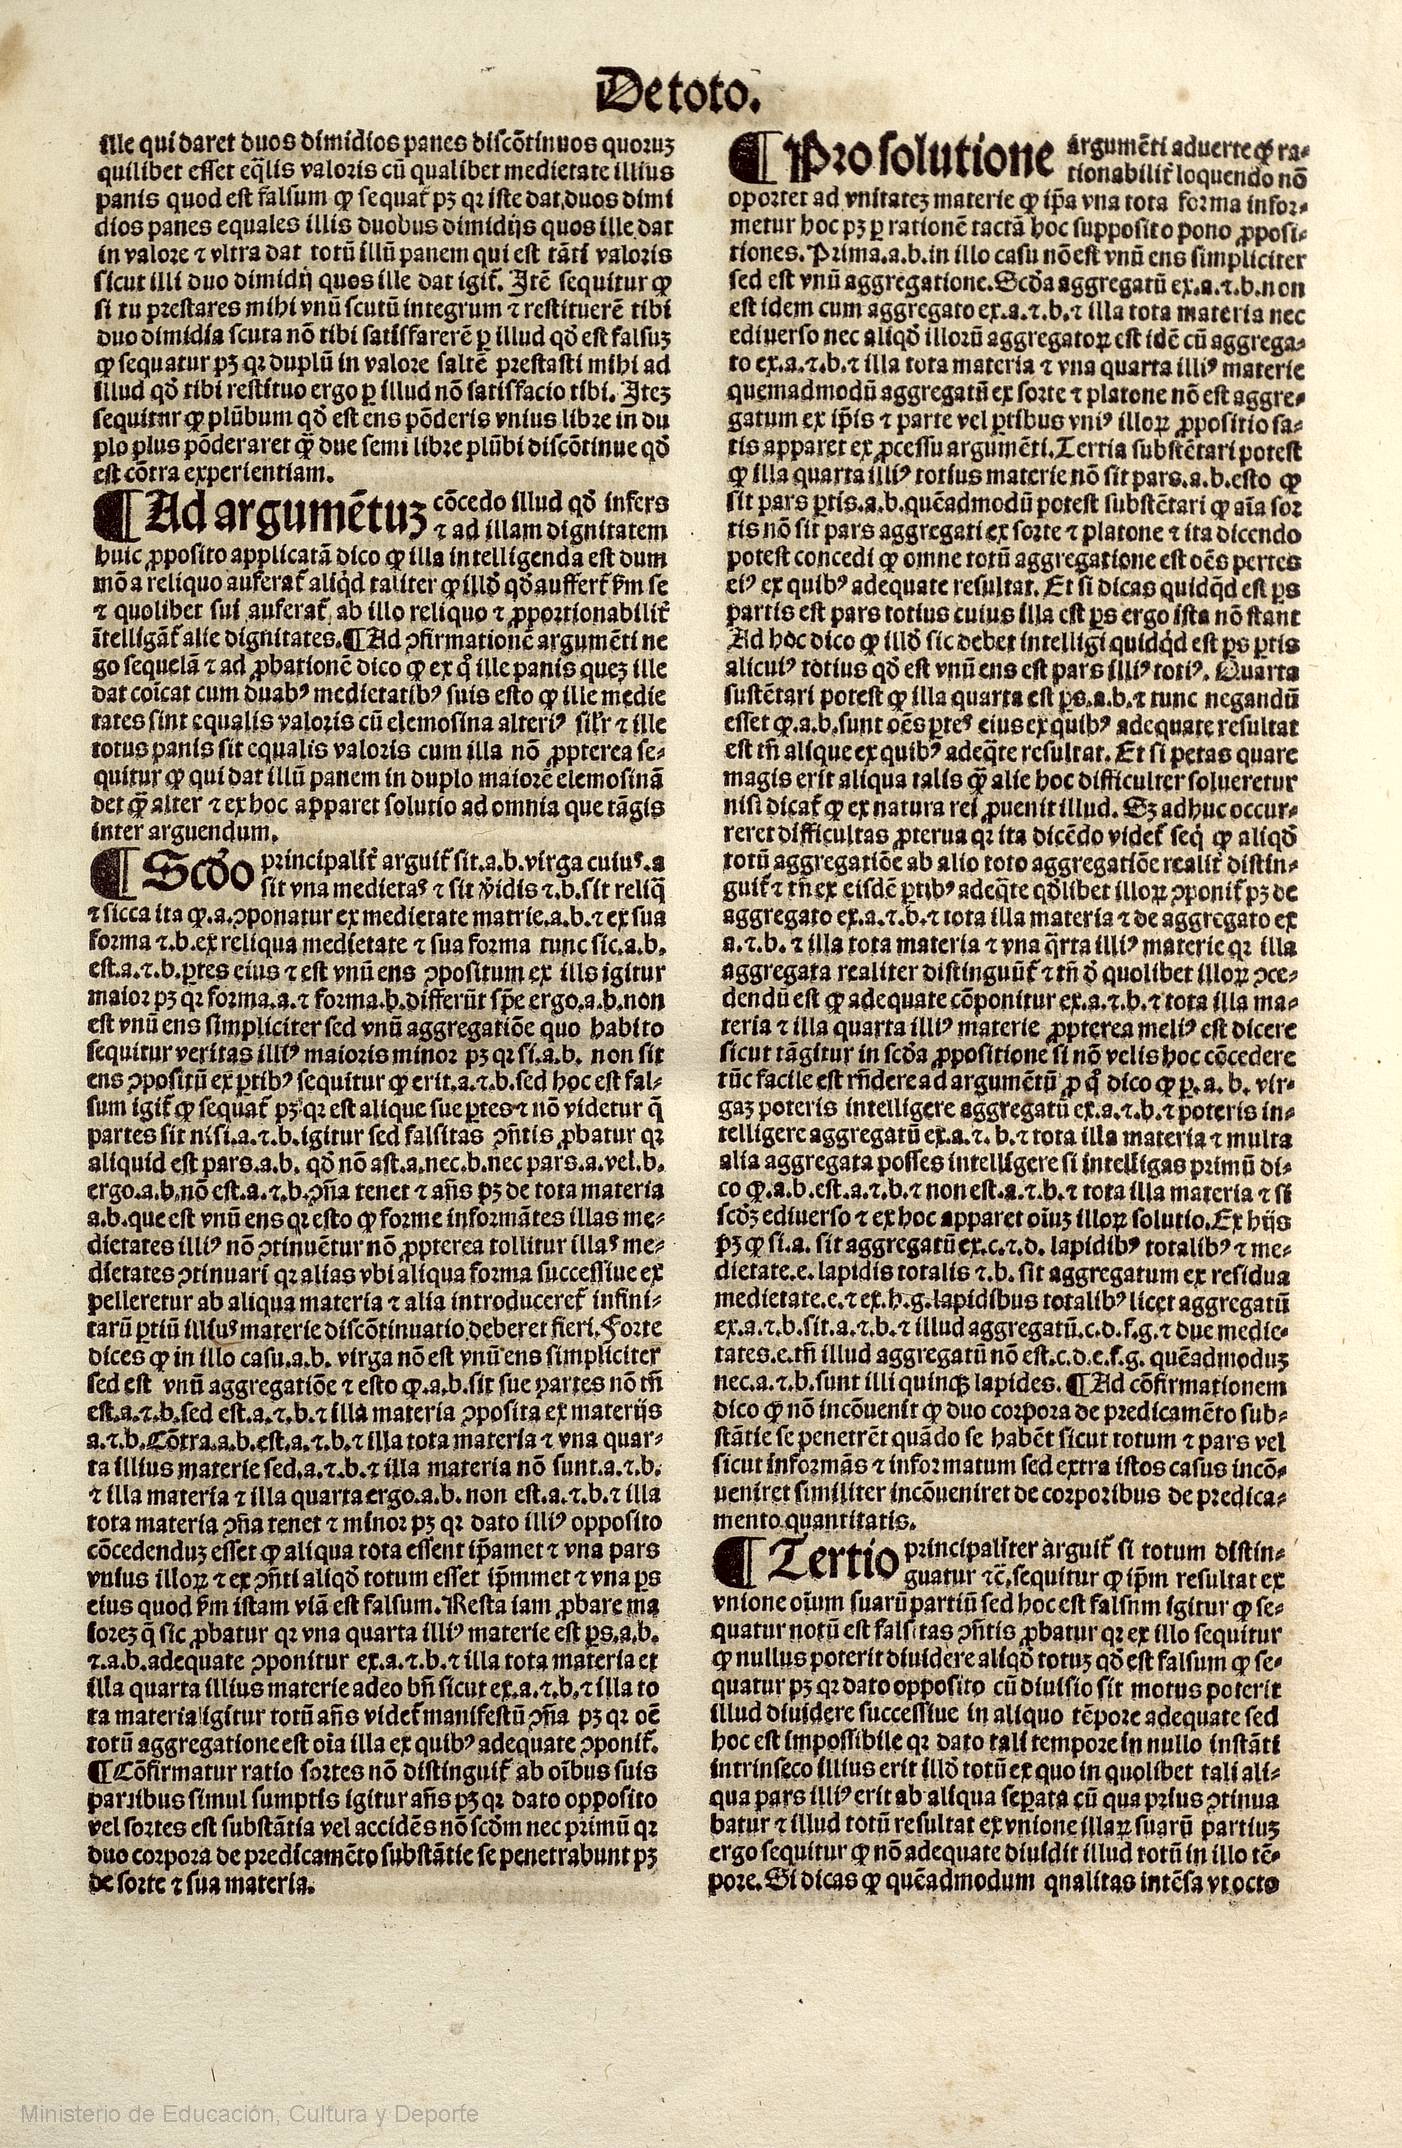 De toto.
ille qui daret duos dimidios panes discõtinuos quoruꝫ
quilibet esset eq̃lis valoris cũ qualibet medietate illius
panis quod est falsum ꝙ sequat᷑ pꝫ qr iste dat duos dimi
dios panes equales illis duobus dimidijs quos ille dat
in valore ⁊ vltra dat totũ illũ panem qui est tãti valoris
sicut illi duo dimidij quos ille dat igit᷑. Itẽ sequitur ꝙ
si tu prestares mihi vnũ scutũ integrum ⁊ restituerẽ tibi
duo dimidia scuta nõ tibi satisfacerẽ ꝑ illud qd̃ est falsuꝫ
ꝙ sequatur pꝫ qr duplũ in valore saltẽ prestasti mihi ad
illud qd̃ tibi restituo ergo ꝑ illud nõ satisfacio tibi. Iteꝫ
sequitur ꝙ plũbum qd̃ est ens põderis vnius libre in du
plo plus põderaret ꝙ̃ due semi libre plũbi discõtinue qd̃
est cõtra experientiam.
¶ Ad argumẽtuꝫ cõcedo illud qd̃ infers
⁊ ad illam dignitatem
huic ꝓposito applicatã dico ꝙ illa intelligenda est dum
mõ a reliquo auferat᷑ aliq̇d taliter ꝙ illd̃ qd̃ auffert᷑ ẜm se
⁊ quolibet sui auferat᷑ ab illo reliquo ⁊ ꝓportionabilit᷑
ĩtelligãt᷑ alie dignitates. ¶ Ad ꝯfirmationẽ argumẽti ne
go sequelã ⁊ ad ꝓbationẽ dico ꝙ ex q̇ ille panis queꝫ ille
dat coĩcat cum duabꝰ medietatibꝰ suis esto ꝙ ille medie
tates sint equalis valoris cũ elemosina alteriꝰ sil̃r ⁊ ille
totus panis sit equalis valoris cum illa nõ ꝓpterea se⸗
quitur ꝙ qui dat illũ panem in duplo maiorẽ elemosinã
det ꝙ̃ alter ⁊ ex hoc apparet solutio ad omnia que tãgis
inter arguendum.
¶ Scd̃o principalit᷑ arguit᷑ sit.a.b.virga cuiuˢ.a
sit vna medietaˢ ⁊ sit ṽidis ⁊.b.sit reliq̃
⁊ sicca ita ꝙ.a.ꝯponatur ex medietate matrie.a.b.⁊ ex sua
forma ⁊.b.ex reliqua medietate ⁊ sua forma tunc sic.a.b.
est.a.⁊.b.ꝑtes eius ⁊ est vnũ ens ꝯpositum ex ills igitur
maior pꝫ qr forma.a.⁊ forma.b.differũt sp̃e ergo.a.b.non
est vnũ ens simpliciter sed vnũ aggregatiõe quo habito
sequitur veritas illiꝰ maioris minor pꝫ qr si.a.b. non sit
ens ꝯpositũ ex ꝑtibꝰ sequitur ꝙ erit.a.⁊.b.sed hoc est fal⸗
sum igit᷑ ꝙ sequat᷑ pꝫ qr est alique sue ꝑtes ⁊ nõ videtur q̃
partes sit nisi.a.⁊.b.igitur sed falsitas ꝯñtis ꝓbatur qr
aliquid est pars.a.b. qd̃ nõ ast.a.nec.b.nec pars.a.vel.b.
ergo.a.b.nõ est.a.⁊.b.ꝯña tenet ⁊ añs pꝫ de tota materia
a.b.que est vnũ ens qr esto ꝙ forme informãtes illas me⸗
dietates illiꝰ nõ ꝯtinuẽtur nõ ꝓpterea tollitur illaˢ me⸗
dietates ꝯtinuari qr alias vbi aliqua forma successiue ex
pelleretur ab aliqua materia ⁊ alia introduceret᷑ infini⸗
tarũ ꝑtiũ illiuˢ materie discõtinuatio deberet fieri. Forte
dices ꝙ in illo casu.a.b. virga nõ est vnũ ens simpliciter
sed est vnũ aggregatiõe ⁊ esto ꝙ.a.b.sit sue partes nõ tñ
est.a.⁊.b.sed est.a.⁊.b.⁊ illa materia ꝯposita ex materijs
a.⁊.b.Cõtra.a.b.est.a.⁊.b.⁊ illa tota materia ⁊ vna quar⸗
ta illius materie sed.a.⁊.b.⁊ illa materia nõ sunt.a.⁊.b.
⁊ illa materia ⁊ illa quarta ergo.a.b. non est.a.⁊.b.⁊ illa
tota materia ꝯña tenet ⁊ minor pꝫ qr dato illiꝰ opposito
cõcedenduꝫ esset ꝙ aliqua tota essent ip̃amet ⁊ vna pars
vnius illoꝝ ⁊ ex ꝯñti aliqd̃ totum esset ip̃mmet ⁊ vna ꝑs
eius quod ẜm istam viã est falsum. Resta iam ꝓbare ma
ioreꝫ q̃ sic ꝓbatur qr vna quarta illiꝰ materie est ꝑs.a.b.
⁊.a.b.adequate ꝯponitur ex.a.⁊.b.⁊ illa tota materia et
illa quarta illius materie adeo bñ sicut ex.a.⁊.b.⁊ illa to
ta materia igitur totũ añs videt᷑ manifestũ ꝯña pꝫ qr oẽ
totũ aggregatione est oĩa illa ex quibꝰ adequate ꝯponit᷑.
¶ Cõfirmatur ratio sortes nõ distinguit᷑ ab oĩbus suis
partibus simul sumptis igitur añs pꝫ qr dato opposito
vel sortes est substãtia vel accidẽs nõ scd̃m nec primũ qr
duo corpora de predicamẽto substãtie se penetrabunt pꝫ
de sorte ⁊ sua materia.
¶ Pro solutione argumẽti aduerte ꝙ ra⸗
tionabilit᷑ loquendo nõ
oportet ad vnitateꝫ materie ꝙ ip̃a vna tota forma infor⸗
metur hoc pꝫ ꝑ rationẽ tactã hoc supposito pono ꝓposi⸗
tiones. Prima.a.b.in illo casu nõ est vnũ ens simpliciter
sed est vnũ aggregatione. Scd̃a aggregatũ ex.a.⁊.b.non
est idem cum aggregato ex.a.⁊.b.⁊ illa tota materia nec
ediuerso nec aliqd̃ illorũ aggregatoꝝ est idẽ cũ aggrega⸗
to ex.a.⁊.b.⁊ illa tota materia ⁊ vna quarta illiꝰ materie
quemadmodũ aggregatũ ex sorte ⁊ platone nõ est aggre⸗
gatum ex ip̃is ⁊ parte vel ꝑtibus vniꝰ illoꝝ ꝓpositio sa⸗
tis apparet ex ꝓcessu argumẽti. Tertia substẽtari potest
ꝙ illa quarta illiꝰ totius materie nõ sit pars.a.b.esto ꝙ
sit pars ꝑtis.a.b.quẽadmodũ potest substẽtari ꝙ aĩa sor
tis nõ sit pars aggregati ex sorte ⁊ platone ⁊ ita dicendo
potest concedi ꝙ omne totũ aggregatione est oẽs pertes
eiꝰ ex quibꝰ adequate resultat. Et si dicas quidq̇d est ꝑs
partis est pars totius cuius illa est ꝑs ergo ista nõ stant
Ad hoc dico ꝙ illd̃ sic debet intelligi quidq̇d est ꝑs ꝑtis
alicuiꝰ totius qd̃ est vnũ ens est pars illiꝰ totiꝰ. Quarta
sustẽtari potest ꝙ illa quarta est ꝑs.a.b.⁊ tunc negandũ
esset ꝙ.a.b.sunt oẽs ꝑteˢ eius ex quibꝰ adequate resultat
est tñ alique ex quibꝰ adeq̃te resultat. Et si petas quare
magis erit aliqua talis ꝙ̃ alie hoc difficulter solueretur
nisi dicat᷑ ꝙ ex natura rei ꝓuenit illud. Sꝫ adhuc occur⸗
reret difficultas ꝓterua qr ita dicẽdo videt᷑ seq̇ ꝙ aliqd̃
totũ aggregatiõe ab alio toto aggregatiõe realit᷑ distin⸗
guit᷑ ⁊ tñ ex eisdẽ ꝑtibꝰ adeq̃te qd̃libet illoꝝ ꝯponit᷑ pꝫ de
aggregato ex.a.⁊.b.⁊ tota illa materia ⁊ de aggregato ex
a.⁊.b.⁊ illa tota materia ⁊ vna q̃rta illiꝰ materie qr illa
aggregata realiter distinguũt᷑ ⁊ tñ d̃ quolibet illoꝝ ꝯce⸗
dendũ est ꝙ adequate cõponitur ex.a.⁊.b.⁊ tota illa ma⸗
teria ⁊ illa quarta illiꝰ materie ꝓpterea meliꝰ est dicere
sicut tãgitur in scd̃a ꝓpositione si nõ velis hoc cõcedere
tũc facile est rñdere ad argumẽtũ ꝓ q̇ dico ꝙ ꝑ.a.b. vir⸗
gaꝫ poteris intelligere aggregatũ ex.a.⁊.b.⁊ poteris in⸗
telligere aggregatũ ex.a.⁊.b.⁊ tota illa materia ⁊ multa
alia aggregata posses intelligere si intelligas primũ di⸗
co ꝙ.a.b.est.a.⁊.b.⁊ non est.a.⁊.b.⁊ tota illa materia ⁊ si
scd̃ꝫ ediuerso ⁊ ex hoc apparet oĩuꝫ illoꝝ solutio. Ex hijs
pꝫ ꝙ si.a. sit aggregatũ ex.c.⁊.d. lapidibꝰ totalibꝰ ⁊ me⸗
dietate.e. lapidis totalis ⁊.b. sit aggregatum ex residua
medietate.e.⁊ ex.h.g.lapidibus totalibꝰ licet aggregatũ
ex.a.⁊.b.sit.a.⁊.b.⁊ illud aggregatũ.c.d.f.g.⁊ due medie⸗
tates.e.tñ illud aggregatũ nõ est.c.d.e.f.g. quẽadmoduꝫ
nec.a.⁊.b.sunt illi quinqꝫ lapides. ¶ Ad cõfirmationem
dico ꝙ nõ incõuenit ꝙ duo corpora de predicamẽto sub⸗
stãtie se penetrẽt quãdo se habẽt sicut totum ⁊ pars vel
sicut informãs ⁊ informatum sed extra istos casus incõ⸗
ueniret similiter incõueniret de corporibus de predica⸗
mento quantitatis.
¶ Tertio principaliter arguit᷑ si totum distin⸗
guatur ⁊c̃, sequitur ꝙ ip̃m resultat ex
vnione oĩum suarũ partiũ sed hoc est falsum igitur ꝙ se⸗
quatur notũ est falsitas ꝯñtis ꝓbatur qr ex illo sequitur
ꝙ nullus poterit diuidere aliqd̃ totuꝫ qd̃ est falsum ꝙ se⸗
quatur pꝫ qr dato opposito cũ diuisio sit motus poterit
illud diuidere successiue in aliquo tẽpore adequate sed
hoc est impossibile qr dato tali tempore in nullo instãti
intrinseco illius erit illd̃ totũ ex quo in quolibet tali ali⸗
qua pars illiꝰ erit ab aliqua seperata cũ qua prius ꝯtinua
batur ⁊ illud totũ resultat ex vnione illaꝝ suarũ partiuꝫ
ergo sequitur ꝙ nõ adequate diuidit illud totũ in illo tẽ⸗
pore. Si dicas ꝙ quẽadmodum qualitas intẽsa vt octo
Ministerio de Educación, Cultura y Deporte